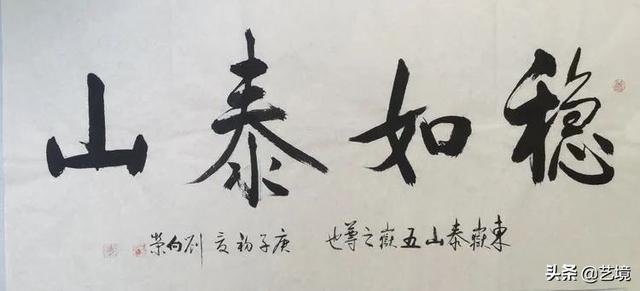 稳如泰山
東嶽泰山五嶽之尊也 庚子初夏 刘向荣
头条 @艺境